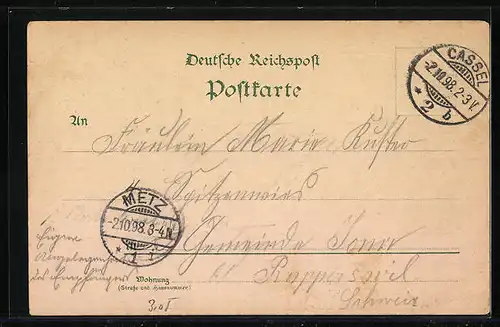 Deutsche Reichspost
Postkarte
CASSEL
-2.10.98. 2-3 V.
* 2 b
An
Fräulein Marie Kuster
Spitzenwies
METZ
-2.10.98. 3-4 N.
Gemeinde Jona
Eigene
Angelegenheit
des Empfängers
Rapperswil
Wohnung
(Straße und Hausnummer)
Schweiz